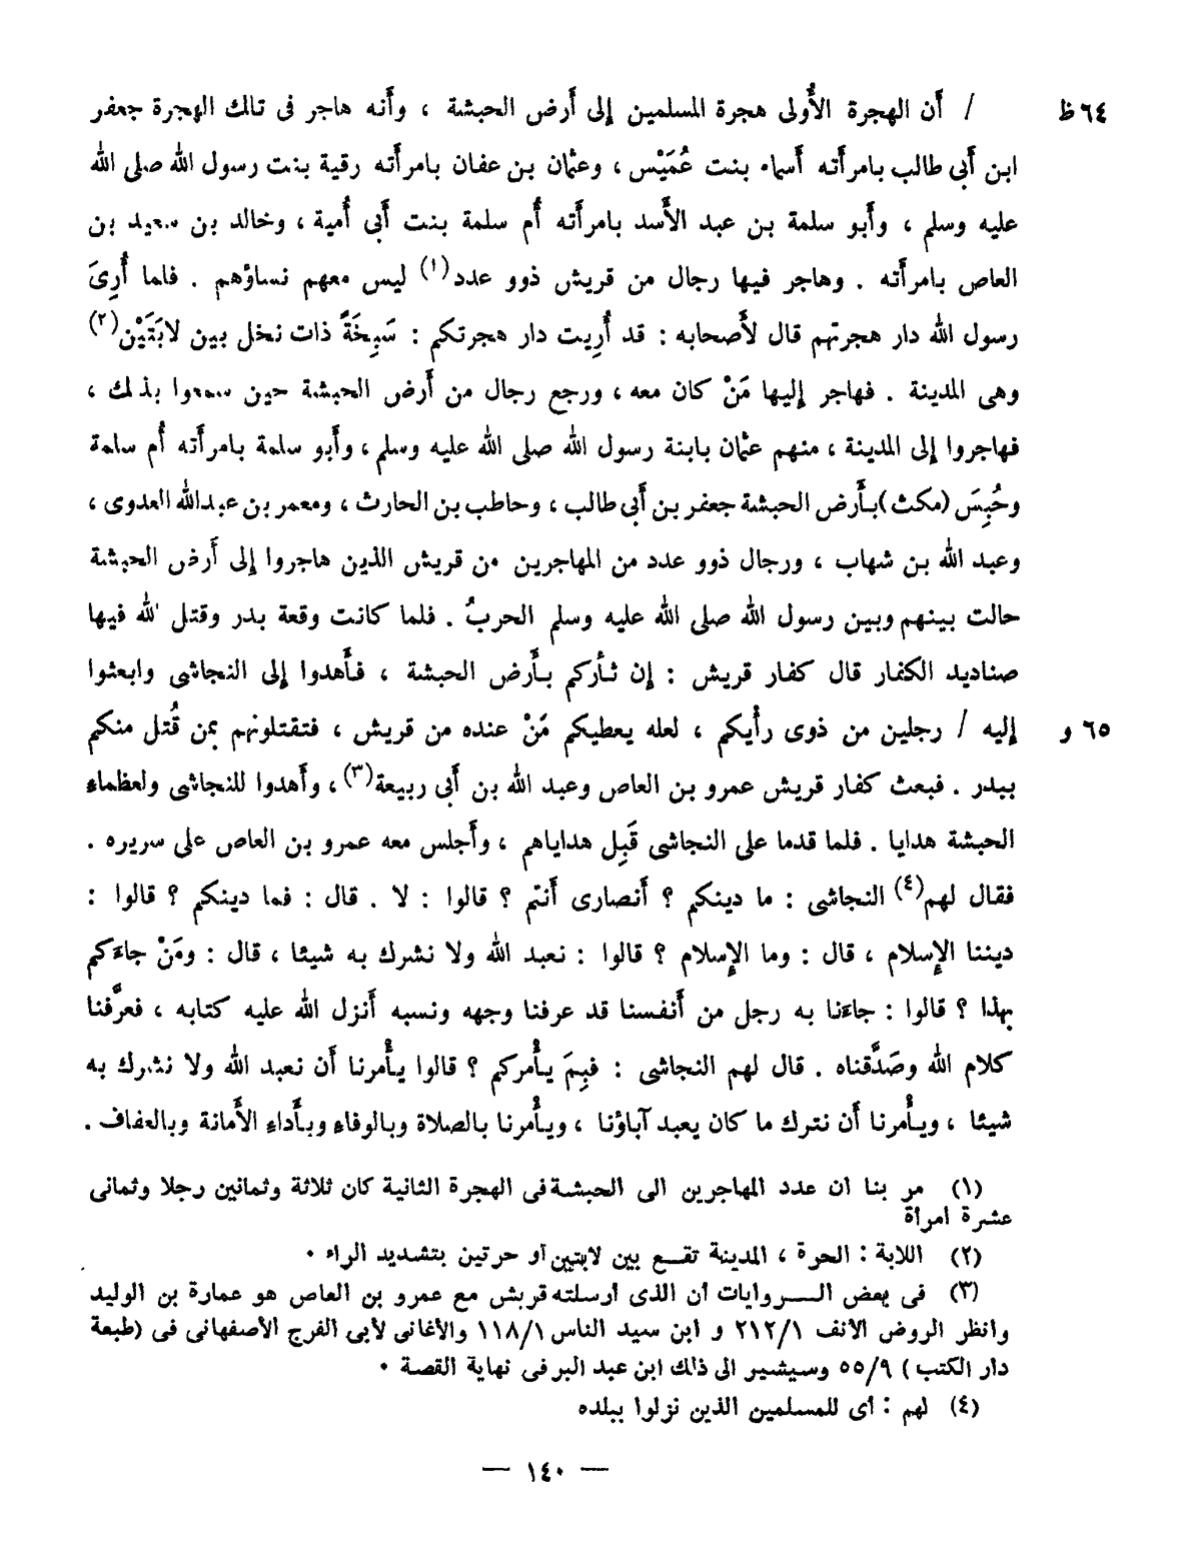 ٦٤ ظ / أَن الهجرة الأُولى هجرة المسلمين إلى أَرض الحبشة ، وأَنه هاجر فى تلك الهجرة جعفر
ابن أَبى طالب بامرأَته أَسماء بنت عُمَيْس ، وعثمان بن عفان بامرأَته رقية بنت رسول الله صلى الله
عليه وسلم ، وأَبو سلمة بن عبد الأَسد بامرأَته أُم سلمة بنت أَبى أُمية ، وخالد بن سعيد بن
العاص بامرأَته . وهاجر فيها رجال من قريش ذوو عدد(١) ليس معهم نساؤهم . فلما أُرِىَ
رسول الله دار هجرتهم قال لأَصحابه : قد أُرِيت دار هجرتكم : سَبِخَةً ذات نخل بين لابَتَيْن(٢)
وهى المدينة . فهاجر إليها مَنْ كان معه ، ورجع رجال من أَرض الحبشة حين سمعوا بذلك ،
فهاجروا إلى المدينة ، منهم عثمان بابنة رسول الله صلى الله عليه وسلم ، وأَبو سلمة بامرأَته أُم سلمة
وحُبِسَ (مكث) بأَرض الحبشة جعفر بن أَبى طالب ، وحاطب بن الحارث ، ومعمر بن عبدالله العدوى ،
وعبد الله بن شهاب ، ورجال ذوو عدد من المهاجرين من قريش الذين هاجروا إلى أَرض الحبشة
حالت بينهم وبين رسول الله صلى الله عليه وسلم الحربُ . فلما كانت وقعة بدر وقتل الله فيها
صناديد الكفار قال كفار قريش : إن ثأركم بأَرض الحبشة ، فأَهدوا إلى النجاشى وابعثوا
٦٥ و إليه / رجلين من ذوى رأْيكم ، لعله يعطيكم مَنْ عنده من قريش ، فتقتلونهم بمن قُتل منكم
ببدر . فبعث كفار قريش عمرو بن العاص وعبد الله بن أَبى ربيعة(٣) ، وأَهدوا للنجاشى ولعظماءِ
الحبشة هدايا . فلما قدما على النجاشى قَبِل هداياهم ، وأَجلس معه عمرو بن العاص على سريره .
فقال لهم(٤) النجاشى : ما دينكم ؟ أَنصارى أَنتم ؟ قالوا : لا . قال : فما دينكم ؟ قالوا :
ديننا الإِسلام ، قال : وما الإِسلام ؟ قالوا : نعبد الله ولا نشرك به شيئا ، قال : ومَنْ جاءَكم
بهذا ؟ قالوا : جاءَنا به رجل من أَنفسنا قد عرفنا وجهه ونسبه أَنزل الله عليه كتابه ، فعرَّفنا
كلام الله وصَدَّقناه . قال لهم النجاشى : فبِمَ يأْمركم ؟ قالوا يأْمرنا أَن نعبد الله ولا نشرك به
شيئا ، ويأْمرنا أَن نترك ما كان يعبد آباؤنا ، ويأْمرنا بالصلاة وبالوفاءِ وبأَداءِ الأَمانة وبالعفاف .
(١) مر بنا ان عدد المهاجرين الى الحبشة فى الهجرة الثانية كان ثلاثة وثمانين رجلا وثمانى
عشرة امرأة
(٢) اللابة : الحرة ، المدينة تقع بين لابتين أو حرتين بتشديد الراء ٠
(٣) فى بعض الروايات أن الذى أرسلته قريش مع عمرو بن العاص هو عمارة بن الوليد
وانظر الروض الانف ٢١٢/١ و ابن سيد الناس ١١٨/١ والأغانى لأبى الفرج الأصفهانى فى (طبعة
دار الكتب ) ٥٥/٩ وسيشير الى ذلك ابن عبد البر فى نهاية القصة ٠
(٤) لهم : أى للمسلمين الذين نزلوا ببلده
— ١٤٠ —